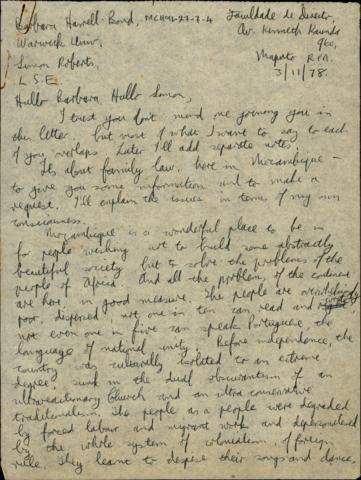 Barbara Harrell-Bond, MCH91-27-3-4
Faculdade de Direito,
Warwick Univ,
Av. Kenneth Kaunda
960,
Simon Roberts,
Maputo R.P.M.
L.S.E.
3/11/78.
Hullo Barbara, Hullo Simon,
I trust you don't mind me joining you in
the letter, but most of what I want to say to each
of you overlaps. Later I'll add separate notes.
It's about family law, here in Mozambique –
to give you some information and to make a
request. I'll explain the issues in terms of my own
consciousness.
Mozambique is a wonderful place to be in
for people wishing not to build some abstractly
beautiful society but to solve the problems of the
people of Africa. And all the problems of the continent
are here, in good measure. The people are overwhelmingly
poor, dispersed, not one in ten can read and
not even one in five can speak Portuguese, the
language of national unity. Before independence, the
country was culturally isolated to an extreme
degree, sunk in the dual obscurantism of an
ultrareactionary Church and an ultra conservative
traditionalism. The people as a people were degraded
by forced labour and migrant work and depersonalised
by the whole system of colonialism, of foreign
rule. They learnt to despise their songs and dance